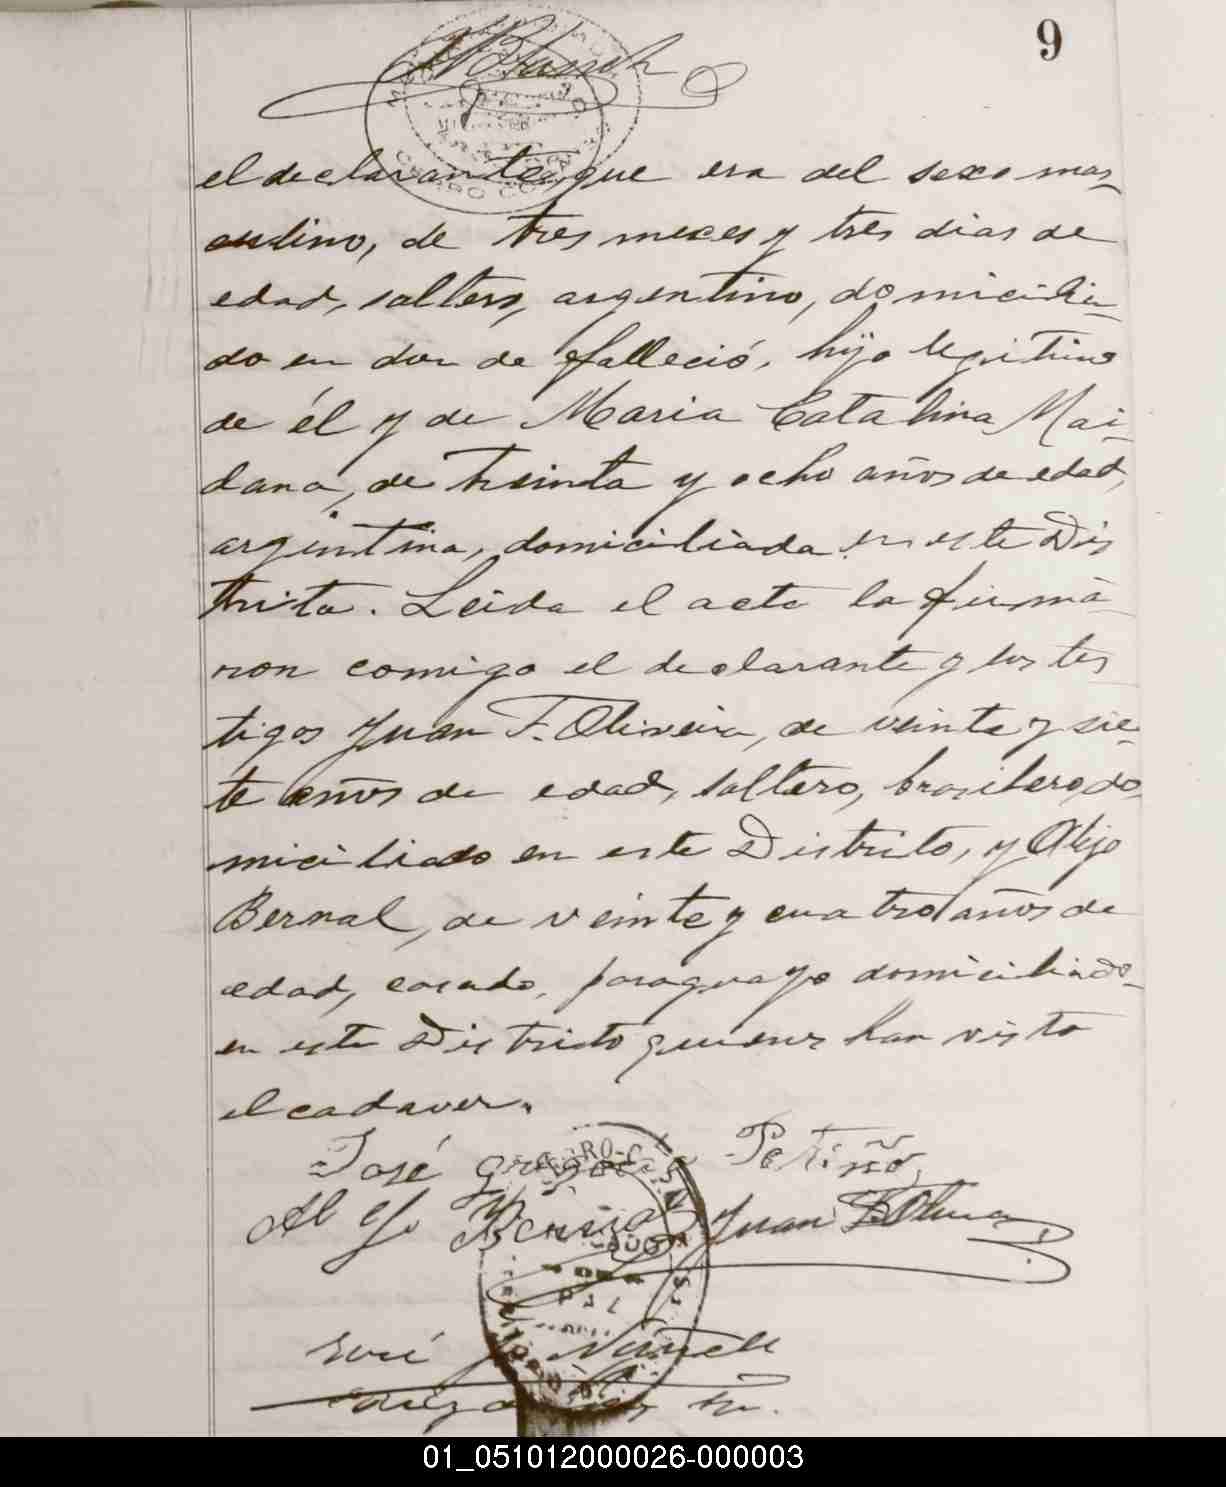 9
el declarante, que era del sexo mas-
culino, de tres meces y tres dias de
edad, soltero, argentino, domicilia-
do en don de falleció, hijo legitimo
de él y de Maria Catalina Mai-
dana, de treinta y ocho años de edad,
argentina, domiciliada en este Dis
trito. Leida el acta la firmá-
ron comigo el declarante y los tes
tigos Juan F. Oliveira, de veinte y sie-
te años de edad, soltero, brasilero, do-
miciliado en este Distrito, y Alejo
Bernal, de veinte y cuatro años de
edad, casado, paraguayo domiciliado-
en este Distrito quienes han visto
el cadaver.
José Gregorio Patiño
Alejo Bernal Juan F. Olivera
José
01_051012000026-000003